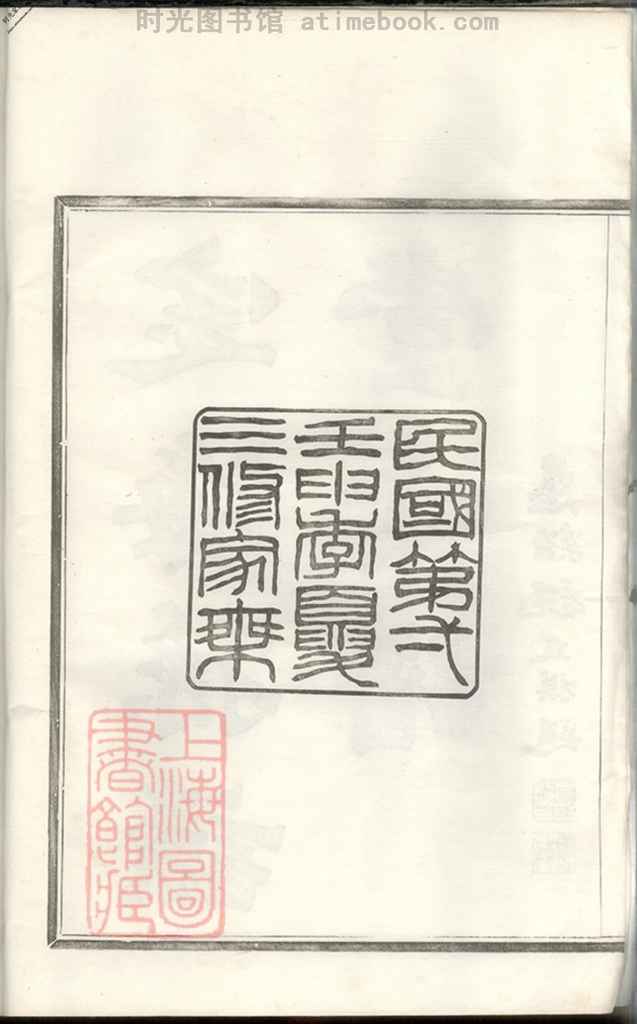 时光图书馆 atimebook.com
民國第弍
壬申季夏
三修家乘
上海圖
書館臧